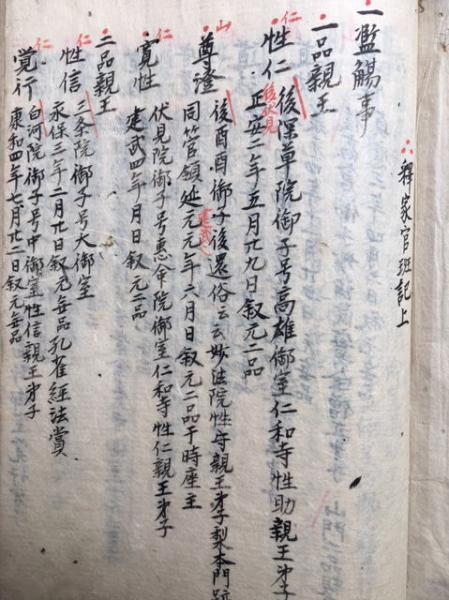 釋家官班記上
一濫觴事
一品親王
仁
性仁 後深草院御子号高雄御室仁和寺性助親王弟子
後伏見
正安二年五月廿九日叙元二品
山
尊證 後酉酉御子後還俗云云妙法院性守親王弟子梨本門跡
同管領延元元年六月日叙元二品于時座主
建武
仁
寛性 伏見院御子号惠命院御室仁和寺性仁親王弟子
建武四年月日叙元二品
二品親王
仁
性信 三条院御子号大御室
永保三年二月廿日叙元無品孔雀経法賞
仁
覚行 白河院御子号中御室性信親王弟子
康和四年七月廿二日叙元無品